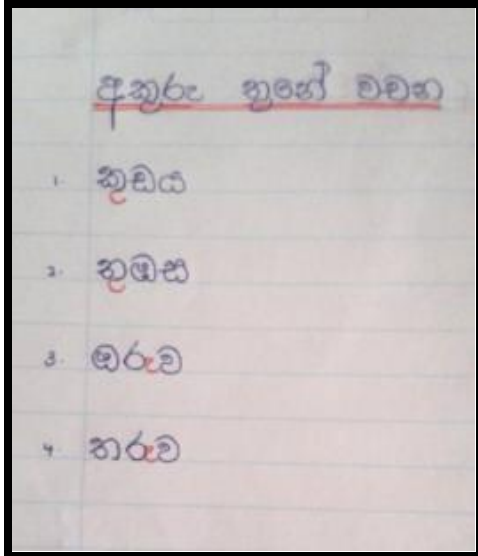 අකුරු තුනේ වචන
1. කුඩය
2. තුඹස
3. ඔරුව
4 තරුව